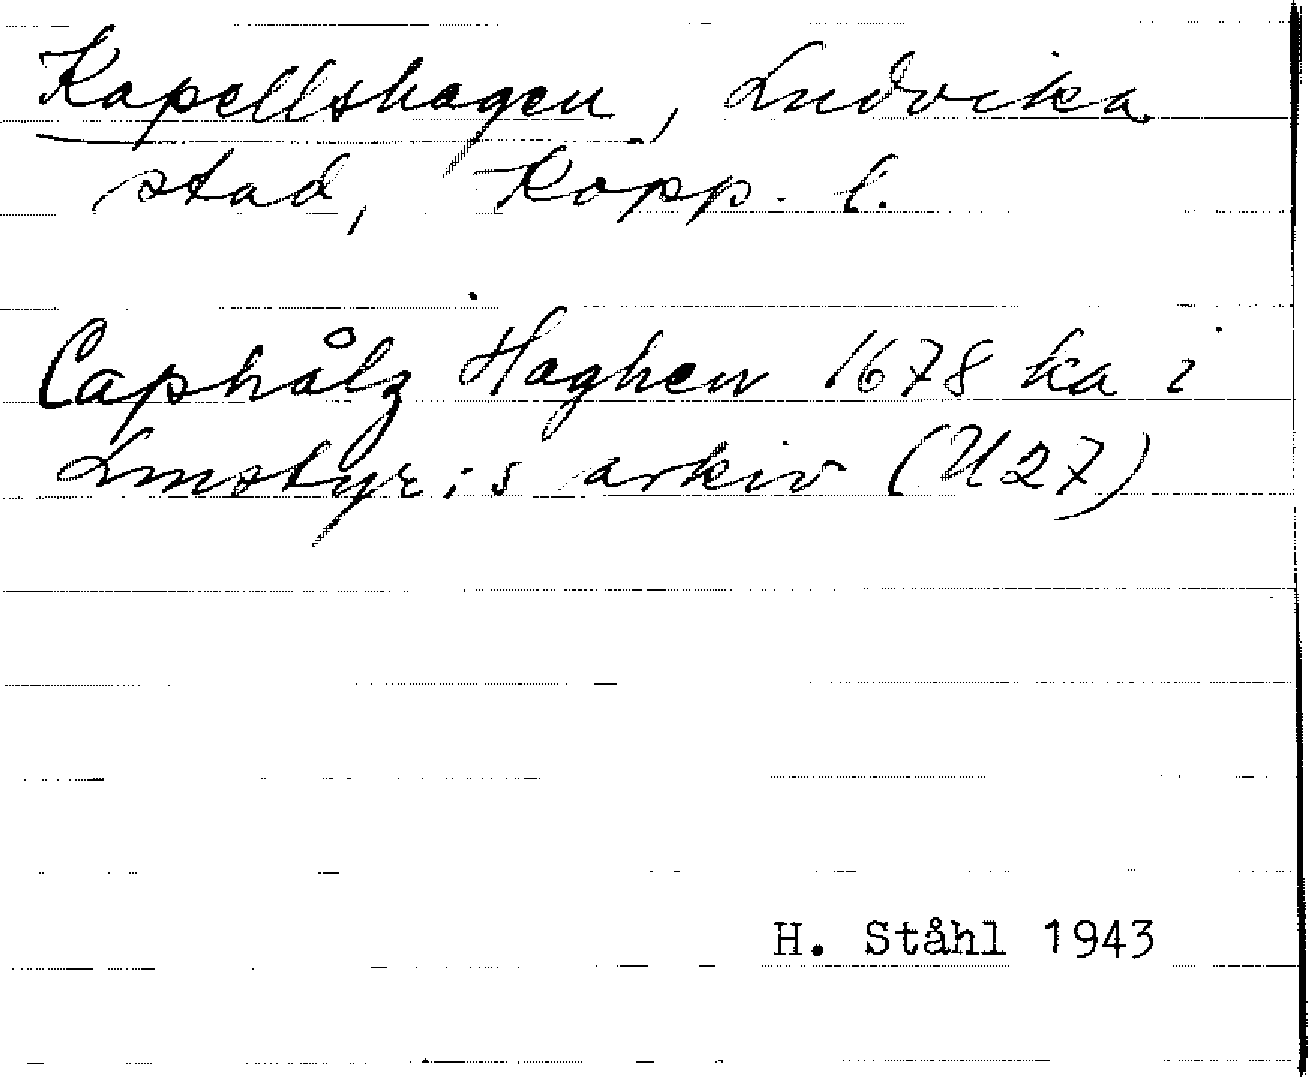 Kapellshagen, Ludvika
stad, Kopp. l.
Caphålz Haghen 1678 ka i
Lmstyr:s arkiv (U27)
H. Ståhl 1943